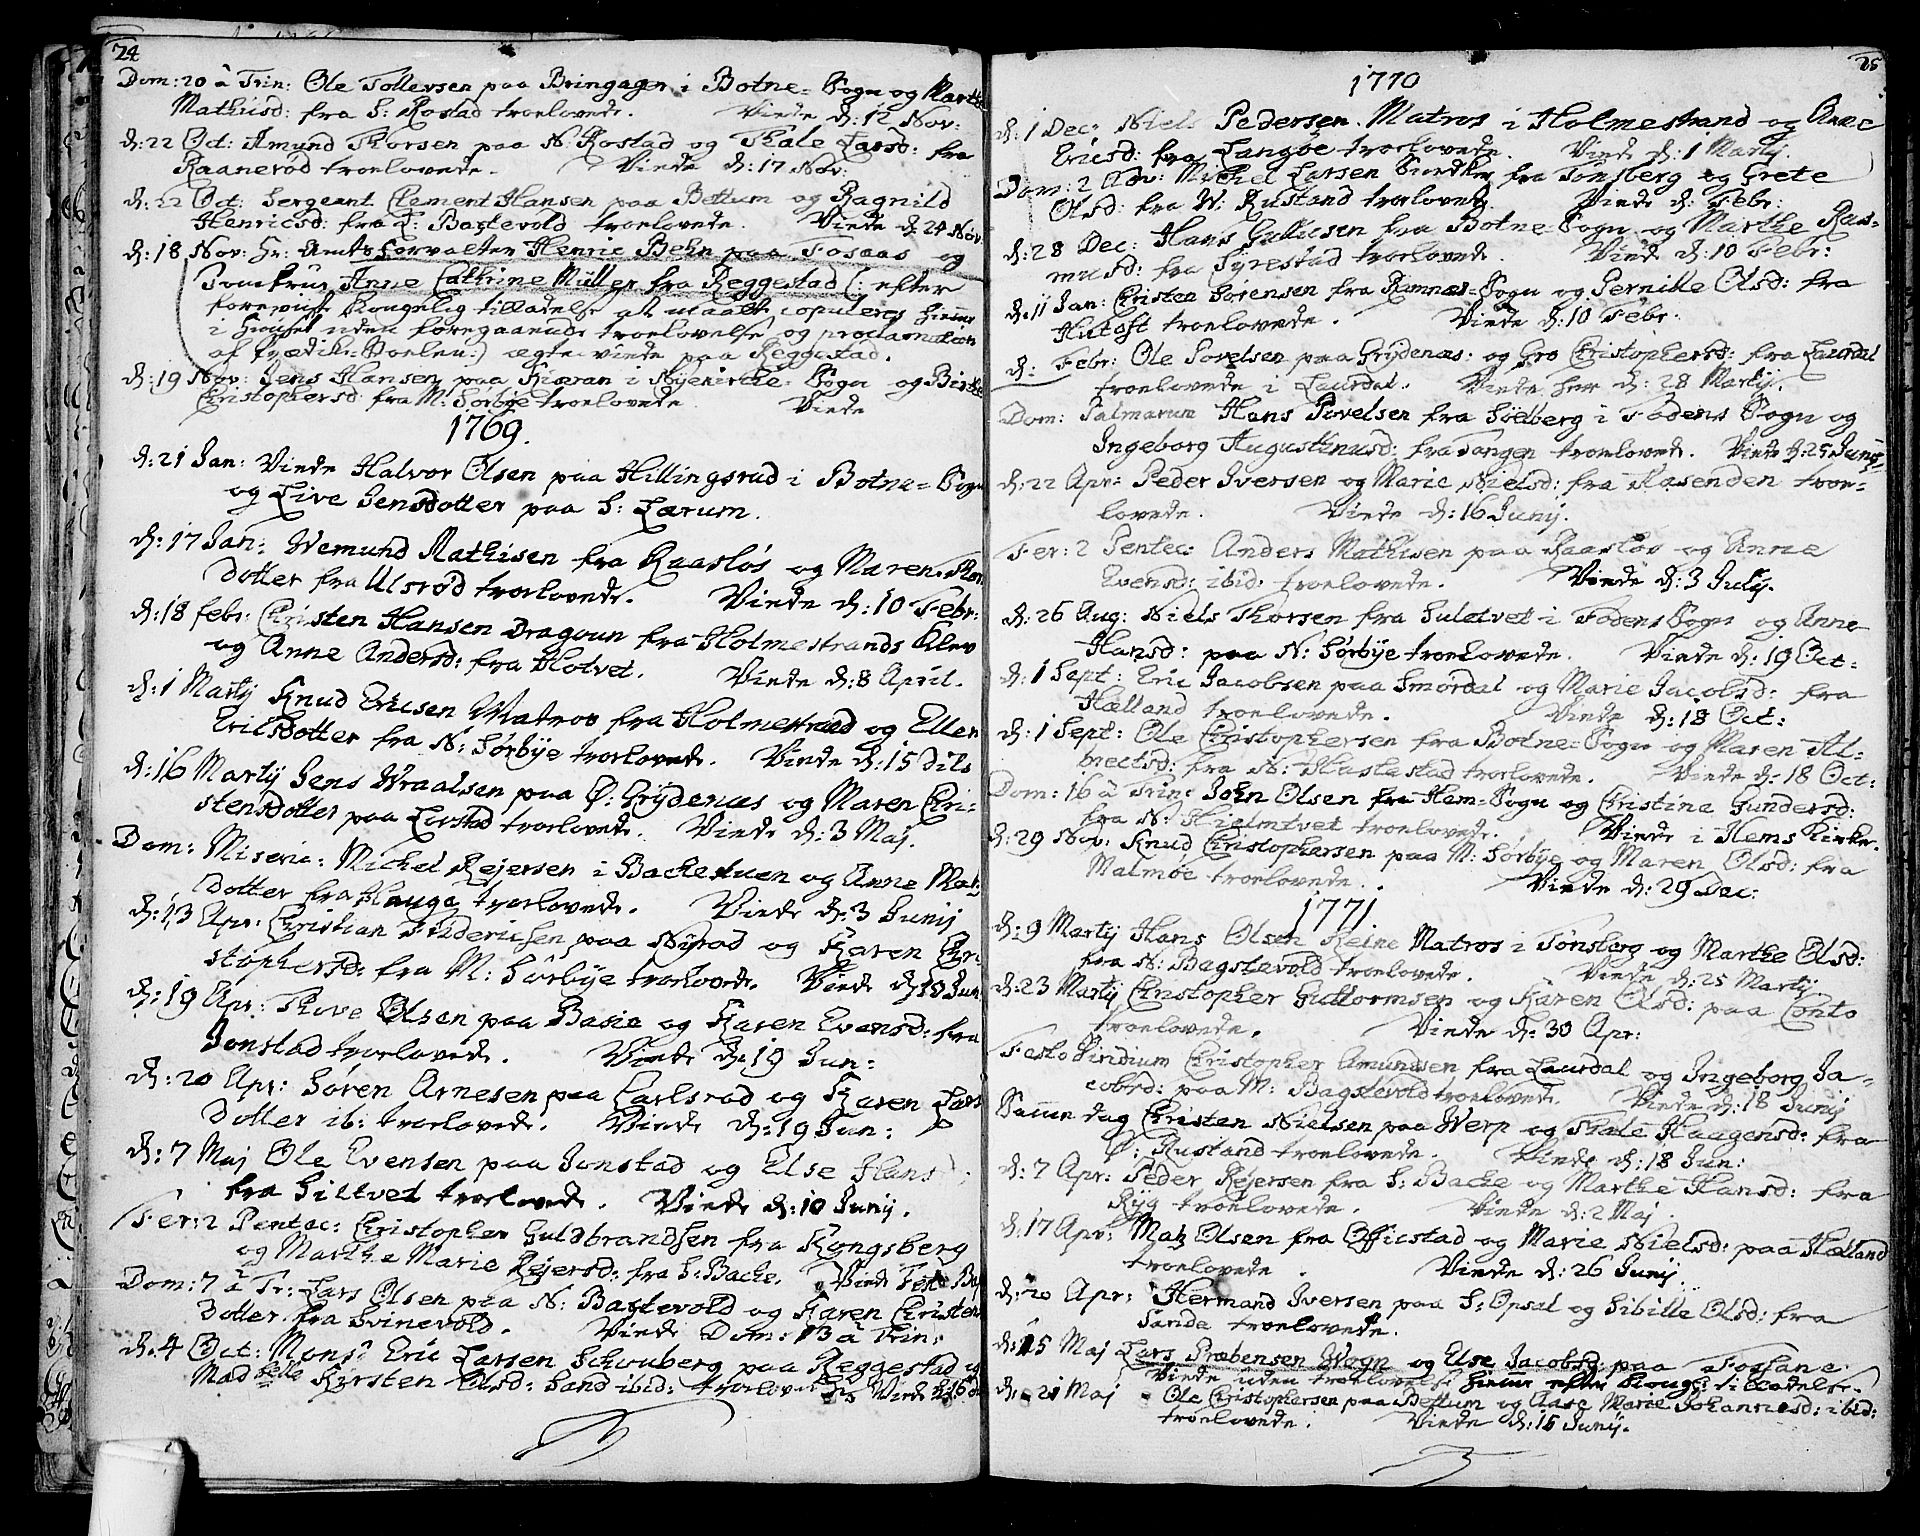 24
Dom: 20 à Trin: Ole Tollevsen paa Bringager i Botne-Sogn og Marthe
Mathiisd: fra S: Rostad troelovede. Viede d: 12 Nov:
d: 22 Oct: Amund Thorsen paa N: Rostad og Thale Larsd: fra
Raanerød troelovede. Viede d: 17 Nov:
d: 22 Oct: Sergeant Clement Hansen paa Bettum og Ragnild
Henricsd: fra Bastevold troelovede. Viede d: 24 Nov:
d: 18 Nov: Hr: Amts Forvalter Henric Behn paa Fosaas og
Jomfrue Anne Cathrine Müller fra Reggestad (: efter
foreviist Kongelig tilladelse at maatte copuleres hiemme
i Huuset uden foregaaende troelovelse og proclamation
af Prædike-Stoelen:) ægteviede paa Reggestad.
d: 19 Nov: Jens Hansen paa i Nyekirche-Sogn og
Christophersd: fra M: Sørbye troelovede Viede
1769.
d: 21 Jan: Viede Halvor Olsen paa Hillingsrud i Botne-Sogn
og Live Jensdotter paa S: Lærum.
d: 17 Jan: Wemund Mathisen fra Raasløs og Maren
dotter fra Ulsrød troelovede. Viede d: 10 Febr:
d: 18 febr: Christen Hansen Dragoun fra Holmestrands Elev
og Anne Andersd: fra Holtvet. Viede d: 8 April.
d: 1 Martij Knud Ericsen Matros fra Holmestrand og Ellen
Erilsdotter fra N: Sørbye troelovede. Viede d: 15 Dito
d: 16 Martij Jens Wraalsen paa Ø: Grydenæs og Maren Chri-
stensdotter paa Løvstad troelovede. Viede d: 3 Maj.
Dom: Miseric: Michel Rejersen i Bachestuen og Anne
dotter fra Hauge troelovede. Viede d: 3 Junij
d: 13 Apr: Christian Friderichsen paa Nyrød og Karen Chri-
stophersd: fra M: Sørbye troelovede Viede d: 10 Jun
d: 19 Apr: Thove Olsen paa Basie og Karen Evensd: fra
Jonstad troelovede. Viede d: 19 Jun:
d: 20 Apr: Søren Arnesen paa Carlsrød og Karen Lars
dotter ib: troelovede. Viede d: 19 Jun:
d: 7 Maj Ole Evensen paa Jonstad og Else Hansd:
fra Siltvet troelovede. Viede d: 10 Junij.
Fer: 2 Pentec: Christopher Guldbrandsen fra Kongsberg
og Marthe Marie Rejersd: fra S: Bache. Viede
Dom: 7 à Tr: Lars Olsen paa N: Bastevold og Karen Christens
dotter fra Svinevold. Viede Dom: 13 à Trin:
d: 4 Oct: Monsr Eric Larsen Schouberg paa Reggestad og
Madselle Kirsten Olsd: Sand ibid: troelovede Viede
25
1770
d: 1 Dec: Niels Pedersen Matros i Holmestrand og Anne
Ericsd: fra Langøe troelovede. Viede d: 1 Martij.
Dom: 2 Adv: Michel Larsen fra Tønsberg og Grete
Olsd: fra W: Rustand troelovede Viede d: Febr:
d: 28 Dec: Hans Gulliesen fra Botne-Sogn og Marthe Ras-
musd: fra Syrestad troelovede. Viede d: 10 Febr:
d: 11 Jan: Christen Sørensen fra Ramnæs-Sogn og Pernille Olsd: fra
Hutoft troelovede. Viede d: 10 Febr:
d: Febr: Ole Povelsen paa Grydenæs: og Gro Christophersd: fra Laurdal
troelovede i Laurdal. Viede her d: 28 Martij.
Dom: Palmarum Hans Povelsen fra Solberg i Fodens Sogn og
Ingeborg Augustinusd: fra Tangen troelovede. Viede d: 25 Junij
d: 22 Apr: Peder Iversen og Marie Nielsd: fra Aasenden troe-
lovede. Viede d: 16 Junij.
Fer: 2 Pentec: Anders Mathisen paa Raasløs og Anne
Evensd: ibid: troelovede. Viede d: 3 Julij.
d: 26 Aug: Niels Thorsen fra Suletvet i Fodens Sogn og Anne
Hansd: paa N: Sørbye troelovede. Viede d: 19 Oct:
d: 1 Sept: Eric Jacobsen paa Smørdal og Marie Jacobsd: fra
Hælland troelovede. Viede d: 18 Oct:
d: 1 Sept: Ole Christophersen fra Botne-Sogn og Maren Al-
brectsd: fra N: Haslestad troelovede. Viede d: 18 Oct:
Dom: 16 à Trin: John Olsen fra Hem-Sogn og Christine Gundersd:
fra N: Hielmtvet troelovede. Viede i Hems Kirke.
d: 29 Nov: Knud Christophersen paa M: Sørbye og Maren Olsd: fra
Malmøe troelovede. Viede d: 29 Dec:
1771
d: 9 Martij Hans Olsen Reine Matros i Tønsberg og Marthe Olsd:
fra N: Bagstevold troelovede. Viede d: 25 Martij.
d: 23 Martij Christopher Guttormsen og Karen Olsd: paa Conto
troelovede. Viede d: 30 Apr:
Festo Viridium Christopher Amundsen fra Laurdal og Ingeborg Ja-
cobsd: paa M: Bagstevold troelovede. Viede d: 18 Junij
Samme dag Christen Nielsen paa Werp og Thale Haagensd: fra
Ø: Rustand troelovede. Viede d: 18 Jun:
d: 7 Apr: Peder Rejersen fra S: Bache og Marthe Hansd: fra
Ryg troelovede. Viede d: 2 Maj.
d: 17 Apr: Matz Olsen fra Offiestad og Marie Nielsd: paa Hælland
troelovede. Viede d: 26 Junij.
d: 20 Apr: Hermand Iversen paa S: Opsal og Sibille Olsd: fra
Sande troelovede.
d: 15 Maj Lars Præbensen Wogn og Else Jacobsd: paa Fossane
Viede uden troelovelse hiemme efter Kongl: tilladelse.
d: 21 Maj Ole Christophersen paa Bettum og Aase Marie Johannesd: ibid:
troelovede. Viede d: 15 Junij.